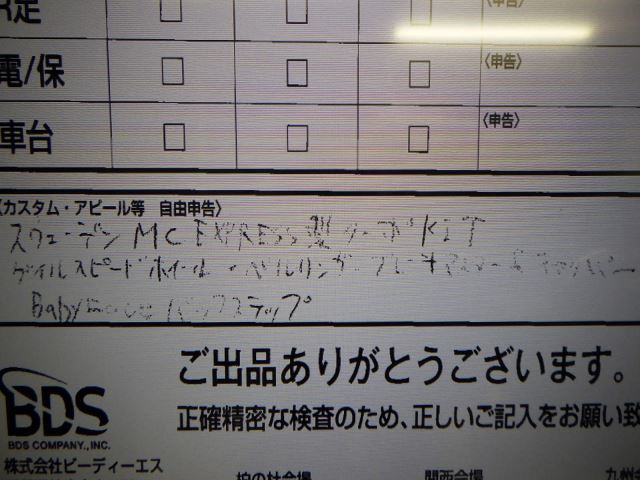 R定
(申告)
電/保 □ □ □ 〈申告〉
車台 □ □ □ 〈申告〉
〈カスタム・アピール等 自由申告〉
スウェーデン MC EXPRESS製ターボKIT
ゲイルスピードホイール・ベルリンガーブレーキ
BabyFace バックステップ
ご出品ありがとうございます。
正確精密な検査のため、正しいご記入をお願い致
BDS
BDS COMPANY.,INC.
株式会社ビーディーエス
柏の杜会場 関西会場 九州会